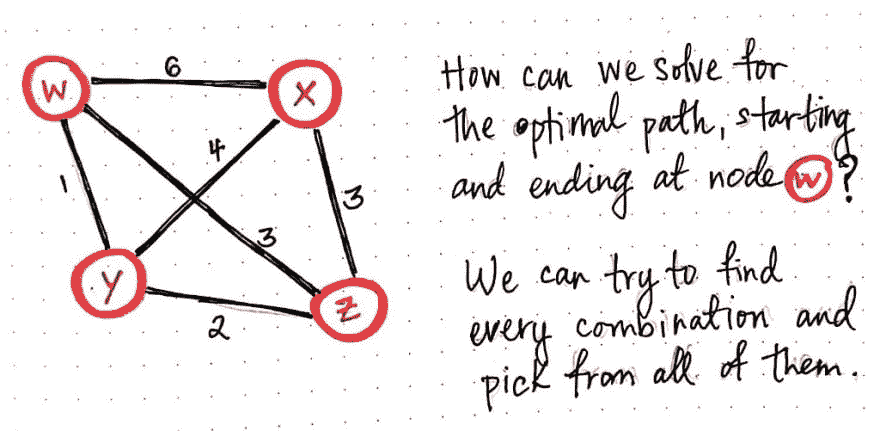 W
6
X
4
1
3
3
Y
2
Z
How can we solve for
the optimal path, starting
and ending at node W?
We can try to find
every combination and
pick from all of them.